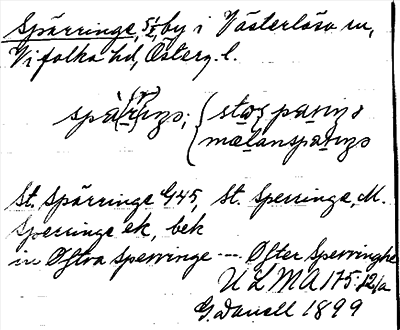 Spärringe, 5/2, by i Västerlösa sn,
Vifolka hd, Österg. l.
(r)
spä(r)iŋə, { stospariŋə
mælanspariŋə
St. Spärringe G45, St. Sperringe, M.
Sperringe ek, bek
in Østra Sperringe --- Øster Sperringhe
ULMA 175:12/a
G. Danell 1899